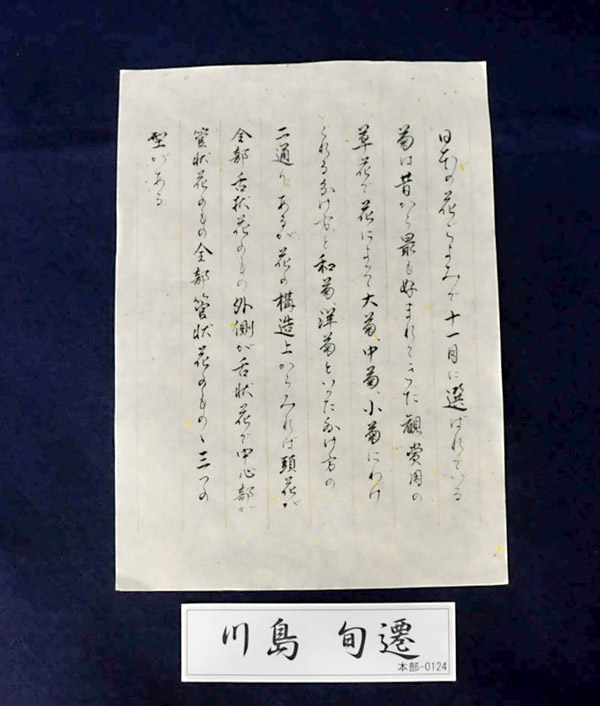 日本の花ごよみで十一月に選ばれている
菊は昔から最も好まれてきた観賞用の
草花で花によって大菊、中菊、小菊にわけ
られる分け方と和菊、洋菊といった分け方の
二通りあるが花の構造上からみれば頭花が
全部舌状花のもの外側が舌状花で中心部が
管状花のもの全部管状花のもの、三つの
型がある
川島 旬遷
本部-0124